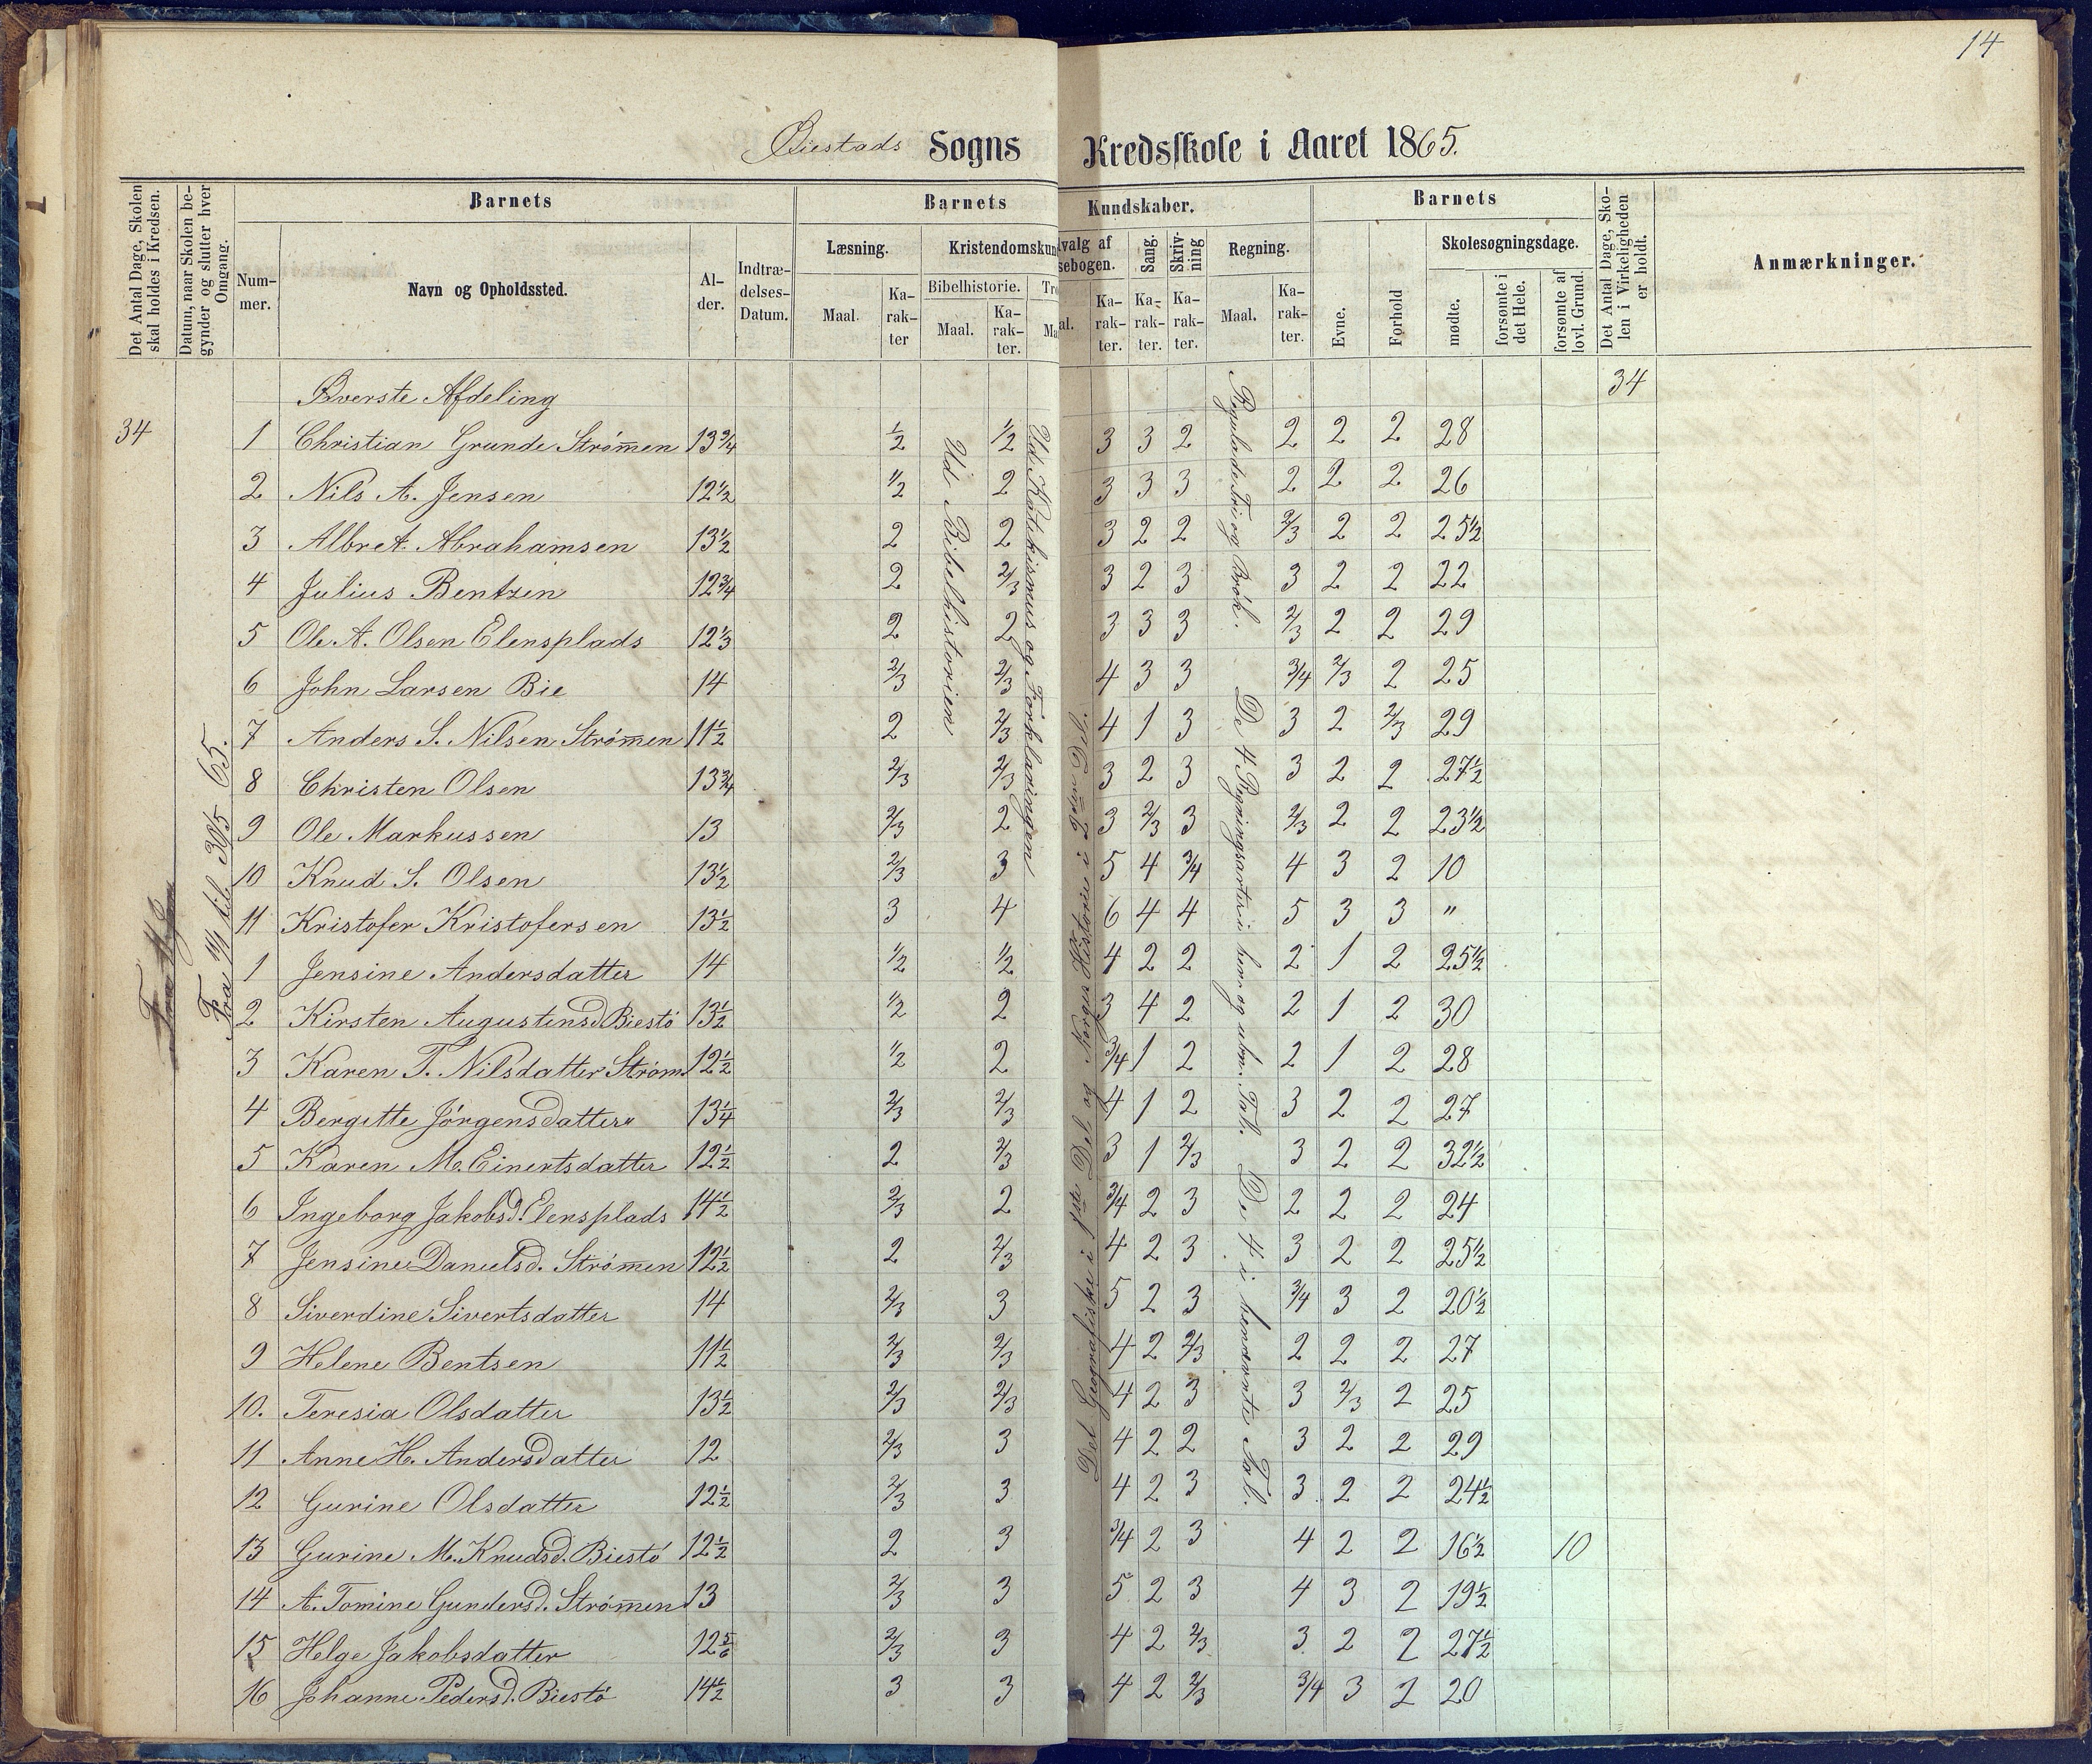 14
Biestads Sogns Kredsskole i Aaret 1865.
Det Antal Dage, Skolen skal holdes i Kredsen.
Datum, naar Skolen begynder og slutter hver Omgang.
Barnets
Nummer.
Navn og Opholdssted.
Alder.
Indtrædelses-Datum.
Barnets Kundskaber.
Læsning.
Maal.
Karakter
Kristendomskun
Bibelhistorie.
Maal.
Karakter.
Tro
Ma
valg af
sebogen.
al.
Karakter.
Sang.
Karakter.
Skrivning
Karakter.
Regning.
Maal.
Karakter.
Barnets
Evne.
Forhold
Skolesøgningsdage.
mødte.
forsømte i det Hele.
forsømte af lovl. Grund.
Det Antal Dage, Skolen i Virkeligheden er holdt.
Anmærkninger.
Øverste Afdeling 34
34
Fra 19/1 til 30/5 65.
Ud Bibelhistorien
Ud Katekismus og Forklaringen
Det Geografiske i 1ste Del og Norges Historie i 2den Del.
Regulade Tri og Brök.
De 4 Regningsarter i hen og uben. Tal.
De 4 i benævnte Tal.
1 Christian Grunde Strømen 13 3/4 1/2 1/2 3 3 2 2 2 2 28
2 Nils A. Jensen 12 1/2 1/2 2 3 3 3 2 2 2 26
3 Albret Abrahamsen 13 1/2 2 2 3 2 2 2/3 2 2 25 1/2
4 Julius Bentzen 12 3/4 2 2/3 3 2 3 3 2 2 22
5 Ole A. Olsen Elensplads 12 1/3 2 2 3 3 3 2/3 2 2 29
6 John Larsen Bie 14 2/3 2/3 4 3 3 3/4 2/3 2 25
7 Anders S. Nilsen Strømen 11 1/2 2 2/3 4 1 3 3 2 2/3 29
8 Christen Olsen 13 3/4 2/3 2/3 3 2 3 3 2 2 27 1/2
9 Ole Markussen 13 2/3 2 3 2/3 3 2/3 2 2 23 1/2
10 Knud S. Olsen 13 1/2 2/3 3 5 4 3/4 4 3 2 10
11 Kristofer Kristofersen 13 1/2 3 4 6 4 4 5 3 3 "
1 Jensine Andersdatter 14 1/2 1/2 4 2 2 2 1 2 25 1/2
2 Kirsten Augustinsd Biestö 13 1/2 1/2 2 3 4 2 2 1 2 30
3 Karen T. Nilsdatter Strøm 12 1/2 1/2 2 3/4 1 2 2 1 2 28
4 Bergitte Jörgensdatter 13 1/4 2/3 2/3 4 1 2 3 2 2 27
5 Karen M. Einertsdatter 12 1/2 2 2/3 3 1 2/3 3 2 2 32 1/2
6 Ingeborg Jakobsd. Elensplads 14 1/2 2/3 2 3/4 2 3 2 2 2 24
7 Jensine Danielsd. Strømen 12 1/2 2 2/3 4 2 3 3 2 2 25 1/2
8 Siverdine Sivertsdatter 14 2/3 3 5 2 3 3/4 3 2 20 1/2
9 Helene Bentsen 11 1/2 2/3 2/3 4 2 2/3 2 2 2 27
10. Teresia Olsdatter 13 1/2 2/3 2/3 4 2 3 3 2/3 2 25
11 Anne H. Andersdatter 12 2/3 3 4 2 2 3 2 2 29
12 Gurine Olsdatter 12 1/2 2/3 3 4 2 3 3 2 2 24 1/2
13 Gurine M. Knudsd. Biestö 12 1/2 2 3 3/4 2 3 4 2 2 16 1/2 10
14 A. Tomine Gundersd. Strømen 13 2/3 3 5 2 3 4 3 2 19 1/2
15 Helge Jakobsdatter 12 5/6 2/3 3 4 2 2/3 3 2 2 27 1/2
16 Johanne Pedersd. Biestö 14 1/2 3 3 4 2 2/3 3/4 3 2 20